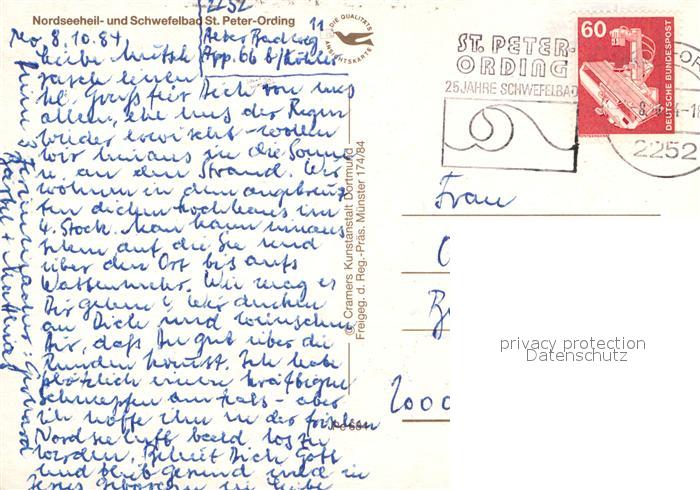 Nordseeheil- und Schwefelbad St. Peter-Ording
2252
11
Mo 8.10.84
App. 66 b/ Köhler
DIE QUALITÄTS
ANSICHTSKARTE
rasch einen
kl. Gruß für Dich von uns
allen, ehe uns der Regen
wieder erwischt - wollen
wir hinaus in die Sonne
u. an den Strand. Wir
wohnen in dem angekreuz-
ten dicken Hochhaus im
4. Stock. Man kann
sehen auf die See und
über den Ort bis aufs
Wattenmeer. Wie mag es
Dir gehen? Wir denken
an Dich und wünschen
Dir, daß Du gut über die
Runden kommst. Ich habe
plötzlich einen kräftigen
Schnupfen am Hals - aber
ich hoffe ihn in der frischen
Nordseeluft bald los zu
werden. Behüt Dich Gott
und bleib gesund und in
© Cramers Kunstanstalt Dortmund
Freigeg. d. Reg.-Präs. Münster 174/84
ST. PETER-
ORDING
25 JAHRE SCHWEFELBAD
60
DEUTSCHE BUNDESPOST
2252
Frau
privacy protection
Datenschutz